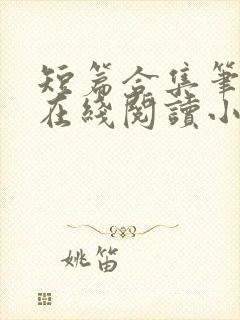 短篇合集筆
在綫閱讀小
姚笛